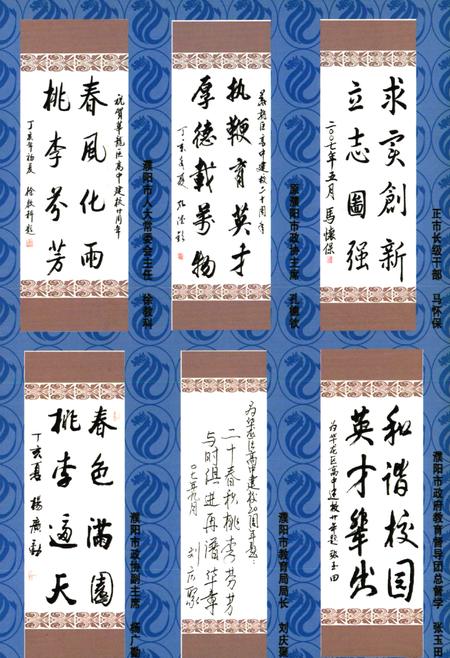 祝贺华龙区高中建校廿周年
春风化雨
桃李芬芳
丁亥年初夏 徐教科题
濮阳市人大常委会主任 徐教科
华龙区高中建校二十周年
执鞭育英才
厚德载万物
丁亥年夏 孔德钦
原濮阳市政协主席 孔德钦
求实创新
立志图强
二〇〇七年五月 马怀保
正市长级干部 马怀保
春色满园
桃李遍天
丁亥夏 杨广勤
濮阳市政协副主席 杨广勤
为华龙区高中建校20周年题:
二十春秋桃李芬芳
与时俱进再谱华章
07年九月 刘庆
濮阳市教育局局长 刘庆
和谐校园
英才辈出
为华龙区高中建校廿年题 张玉田
濮阳市政府教育督导团总督学 张玉田